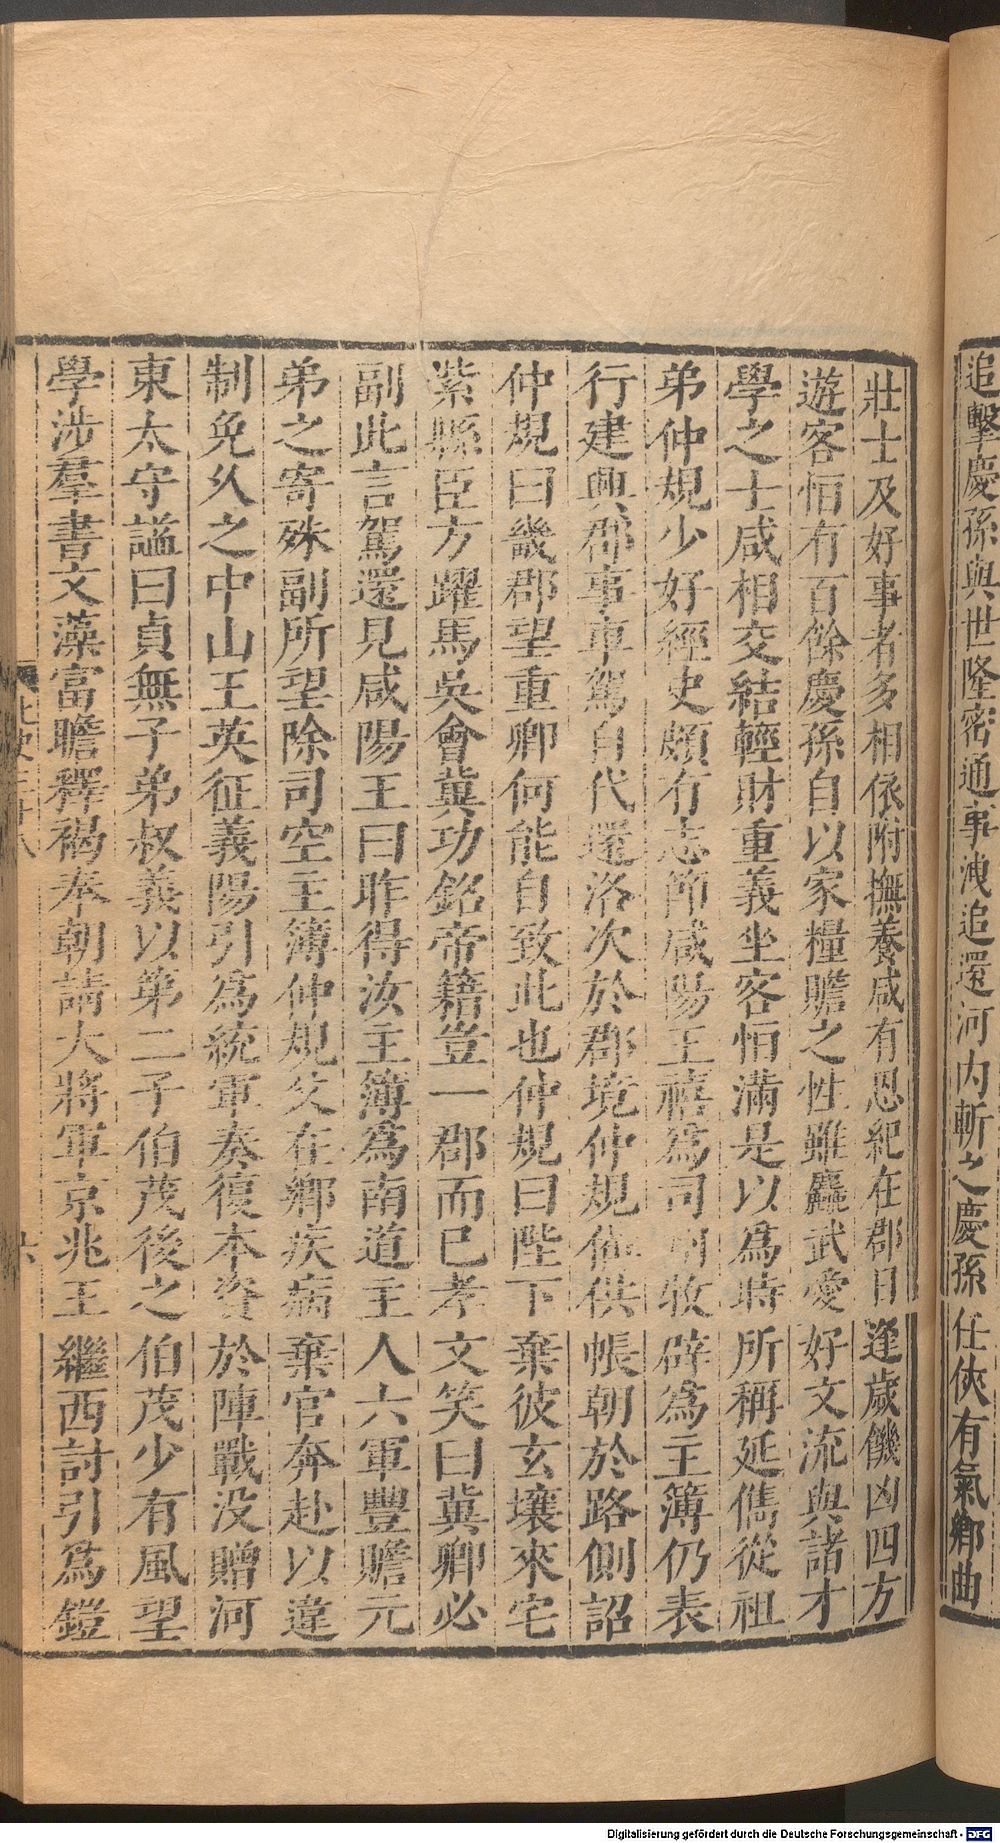 追擊慶孫與世隆密通事洩追還河內斬之慶孫任俠有氣鄉曲
壯士及好事者多相依附撫養咸有恩紀在郡日逢歲饑凶四方
遊客恒有百餘慶孫自以家糧贍之性雖麤武愛好文流與諸才
學之士咸相交結輕財重義坐客恒滿是以爲時所稱延儁從祖
弟仲規少好經史頗有志節咸陽王禧爲司州牧辟爲主簿仍表
行建興郡事車駕自代還洛次於郡境仲規備供帳朝於路側詔
仲規曰畿郡望重卿何能自致此也仲規曰陛下棄彼玄壤來宅
紫縣臣方躍馬吳會冀功銘帝籍豈一郡而已孝文笑曰冀卿必
副此言駕還見咸陽王曰昨得汝主簿爲南道主人六軍豐贍元
弟之寄殊副所望除司空主簿仲規父在鄉疾病棄官奔赴以違
制免久之中山王英征義陽引爲統軍奏復本資於陣戰没贈河
東太守謚曰貞無子弟叔義以第二子伯茂後之伯茂少有風望
學涉羣書文藻富贍釋褐奉朝請大將軍京兆王繼西討引爲鎧
六
Digitalisierung gefördert durch die Deutsche Forschungsgemeinschaft - DFG